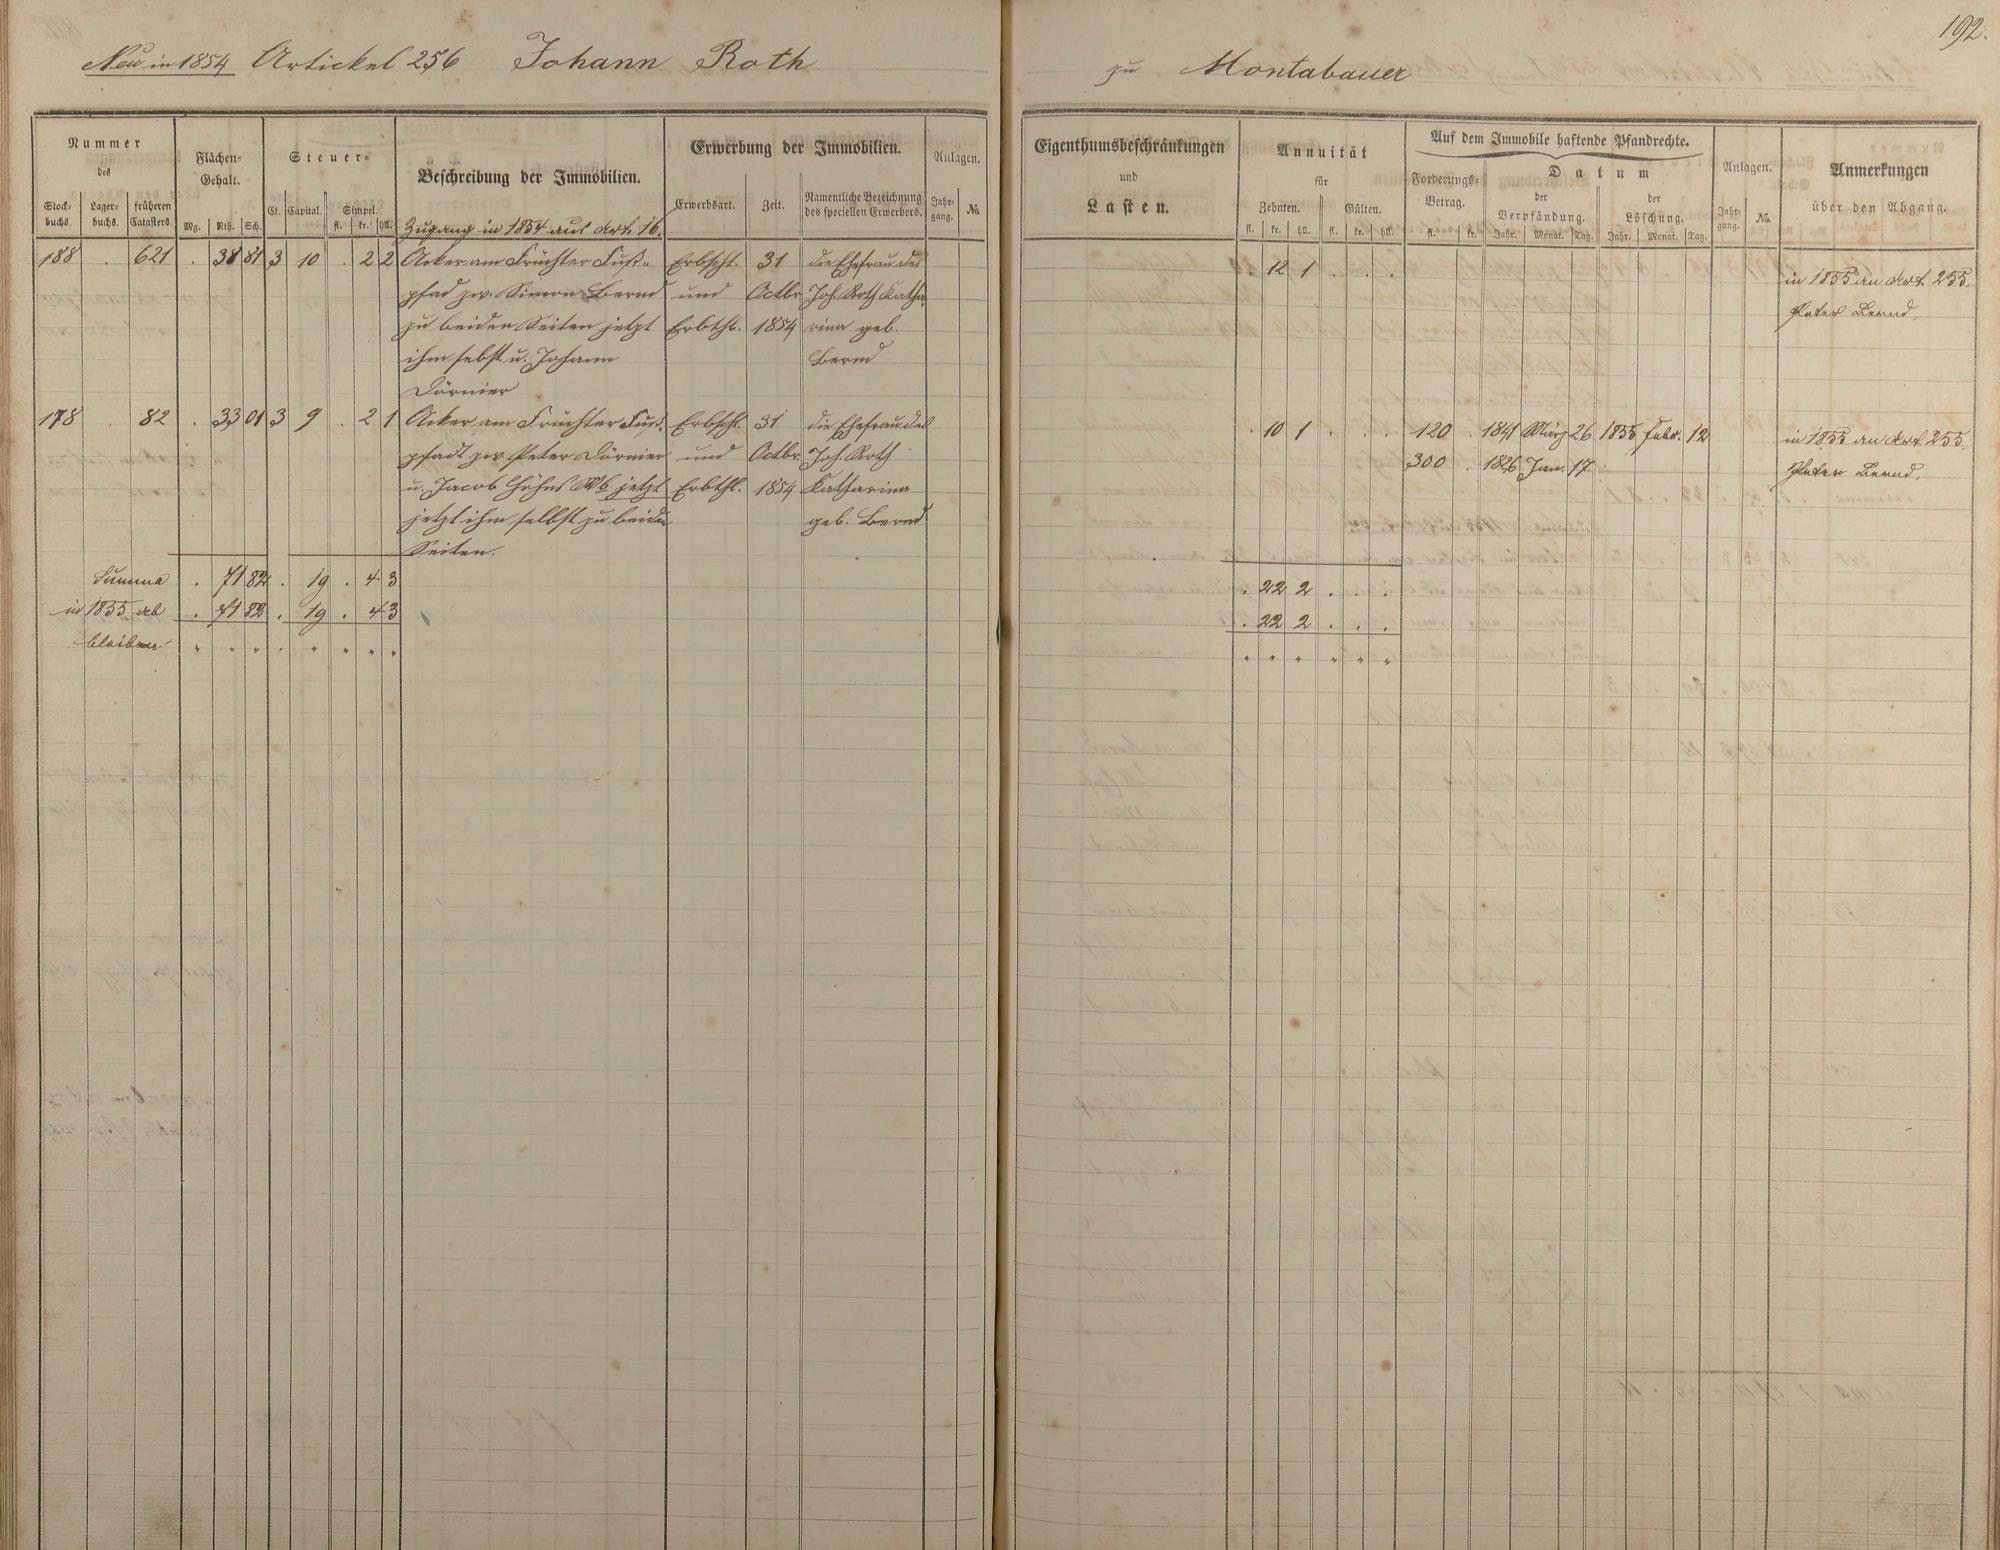 192.
Neu in 1854 Artickel 256 Johann Roth zu Montabauer
Nummer
des
Stock-
buchs.
Lager-
buchs.
früheren
Catasters.
Flächen-
Gehalt.
Mg. Rth. Sch.
Steuer-
Cl. Capital. Simpel.
fl. kr. hll.
Beschreibung der Immobilien.
Zugang in 1854 aus Art. 16.
Erwerbung der Immobilien.
Erwerbsart. Zeit. Namentliche Bezeichnung
des speciellen Erwerbers.
Anlagen.
Jahr-
gang. No.
Eigenthumsbeschränkungen
und
Lasten.
Annuität
für
Zehnten. Gülten.
fl. kr. hll. fl. kr. hll.
Auf dem Immobile haftende Pfandrechte.
Forderungs-
Betrag.
fl. kr.
Datum
der
Verpfändung.
Jahr. Monat. Tag.
der
Löschung.
Jahr. Monat. Tag.
Anlagen.
Jahr-
gang. No.
Anmerkungen
über den Abgang.
188 . 621 . 38 81 3 10 . 2 2 Acker am Früchter Fuß- Erbscht. 31 die Ehefrau des . 12 1 . . .
pfad zw. Simon Bernd und Octbr Joh. Roth Katha- in 1855 an Art. 255.
zu beiden Seiten jetzt Erbthl. 1854 rina geb. Peter Bernd,
ihm selbst u. Johann Bernd
Dörnier
178 . 82 . 33 01 3 9 . 2 1 Acker am Früchter Fuß- Erbscht. 31 die Ehefrau des . 10 1 . . . 120 . 1841 März 26 1855 Febr. 12 in 1855 an Art. 255,
pfadt zw. Peter Dörnier und Octbr. Joh. Roth 300 . 1826 Jan. 17 Peter Bernd,
u. Jacob Höhns Wb jetzt Erbthl. 1854 Katharina
jetzt ihm selbst zu beiden geb. Bernd
Seiten.
Summa . 71 82 . 19 . 4 3 . 22 2 . . .
in 1855 ab . 71 82 . 19 . 4 3 . 22 2 . . .
bleiben " " " " " " " " " " " " " "